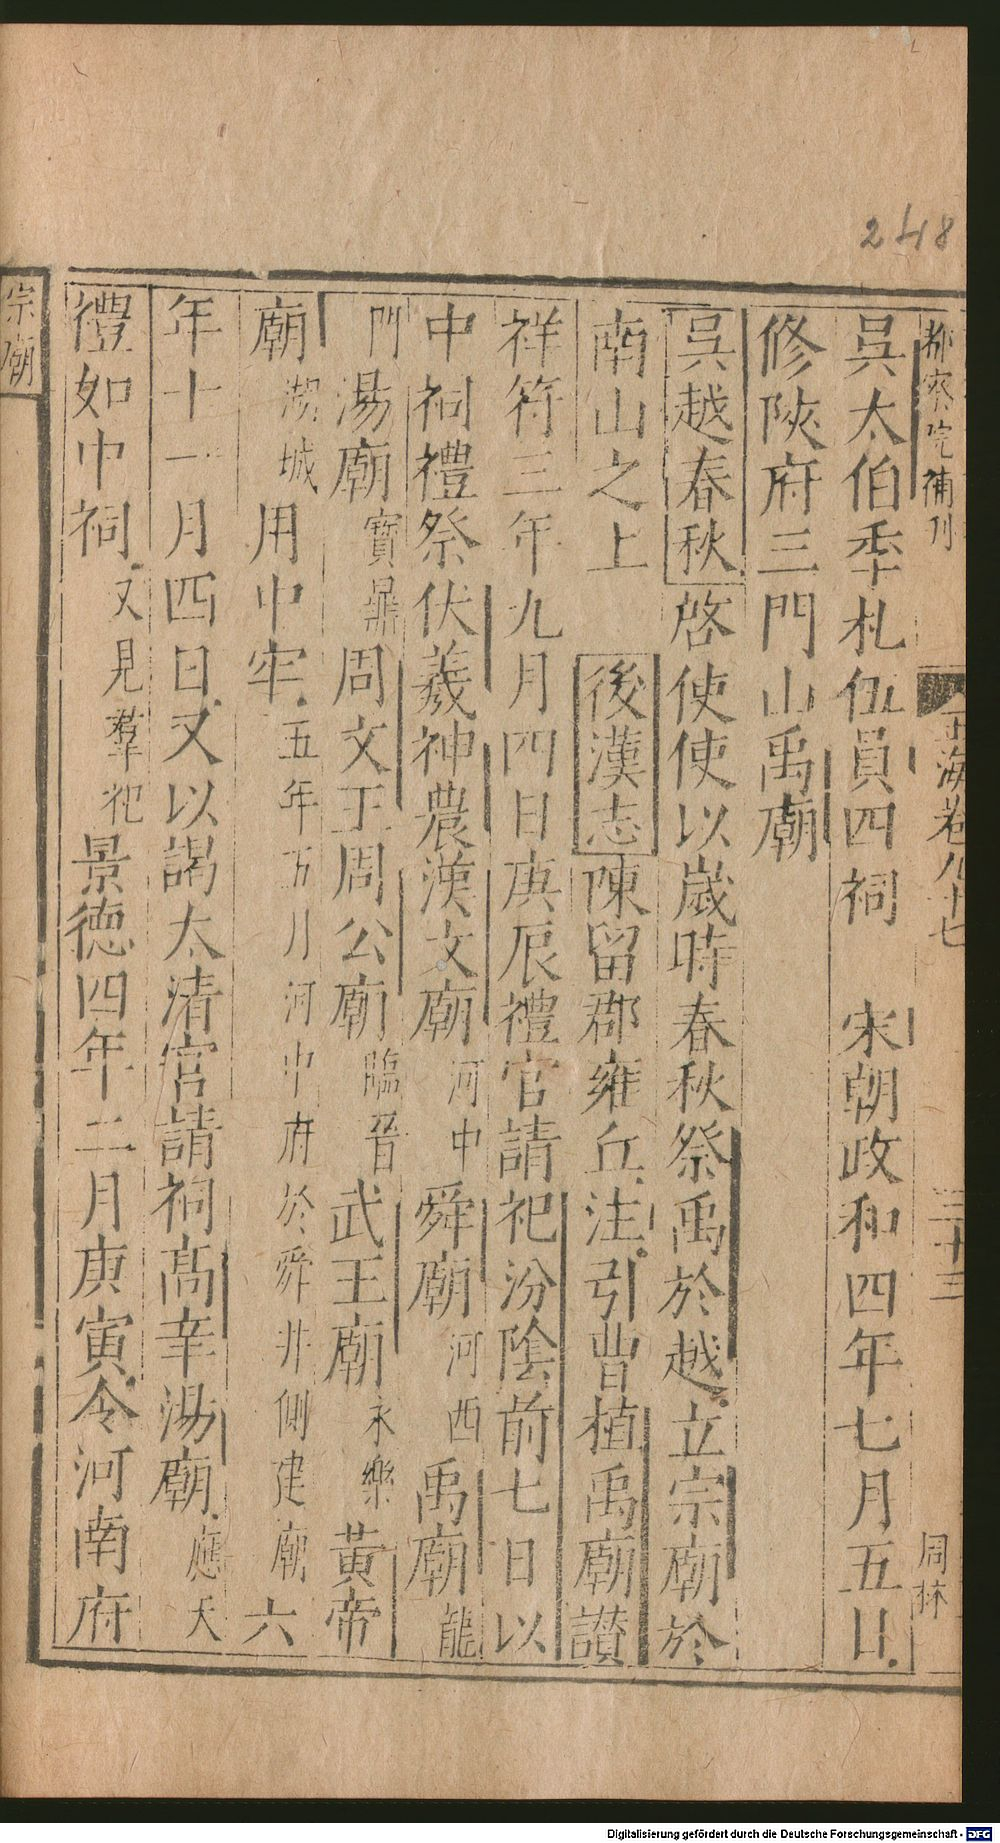 248
都察院補刊
玉海卷九十七
三十三
周林
吳太伯季札伍員四祠　宋朝政和四年七月五日
修陜府三門山禹廟
吳越春秋啓使使以歲時春秋祭禹於越立宗廟於
南山之上　後漢志陳留郡雍丘注引曹植禹廟讃
祥符三年九月四日庚辰禮官請祀汾陰前七日以
中祠禮祭伏羲神農漢文廟河中舜廟河西禹廟龍
門湯廟寶鼎周文王周公廟臨晉武王廟永樂黃帝
廟湖城用中牢五年五月河中府於舜井側建廟六
年十一月四日又以謁太清宮請祠高辛湯廟應天
禮如中祠又見羣祀景德四年二月庚寅令河南府
宗廟
Digitalisierung gefördert durch die Deutsche Forschungsgemeinschaft - DFG